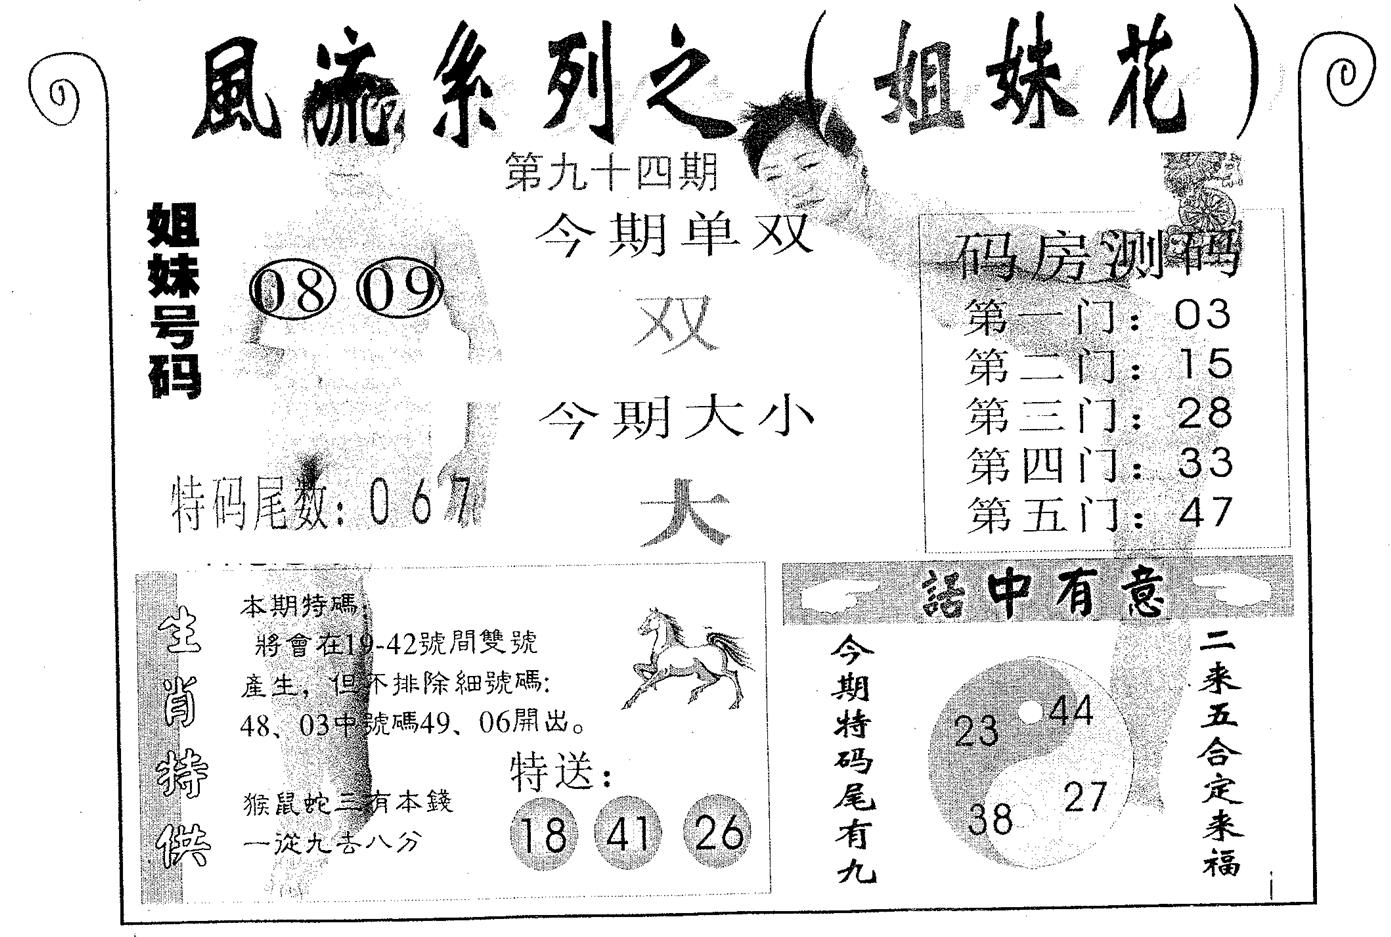 風流系列之（姐妹花）
第九十四期
姐妹号码
08 09
特码尾数：0 6 7
今期单双
双
今期大小
大
码房测码
第一门：03
第二门：15
第三门：28
第四门：33
第五门：47
生肖特供
本期特碼：
將會在19-42號間雙號
產生，但不排除細號碼：
48、03中號碼49、06開出。
猴鼠蛇三有本錢
一從九去八分
特送：
18 41 26
話中有意
今期特码尾有九
23 44
38 27
二来五合定来福